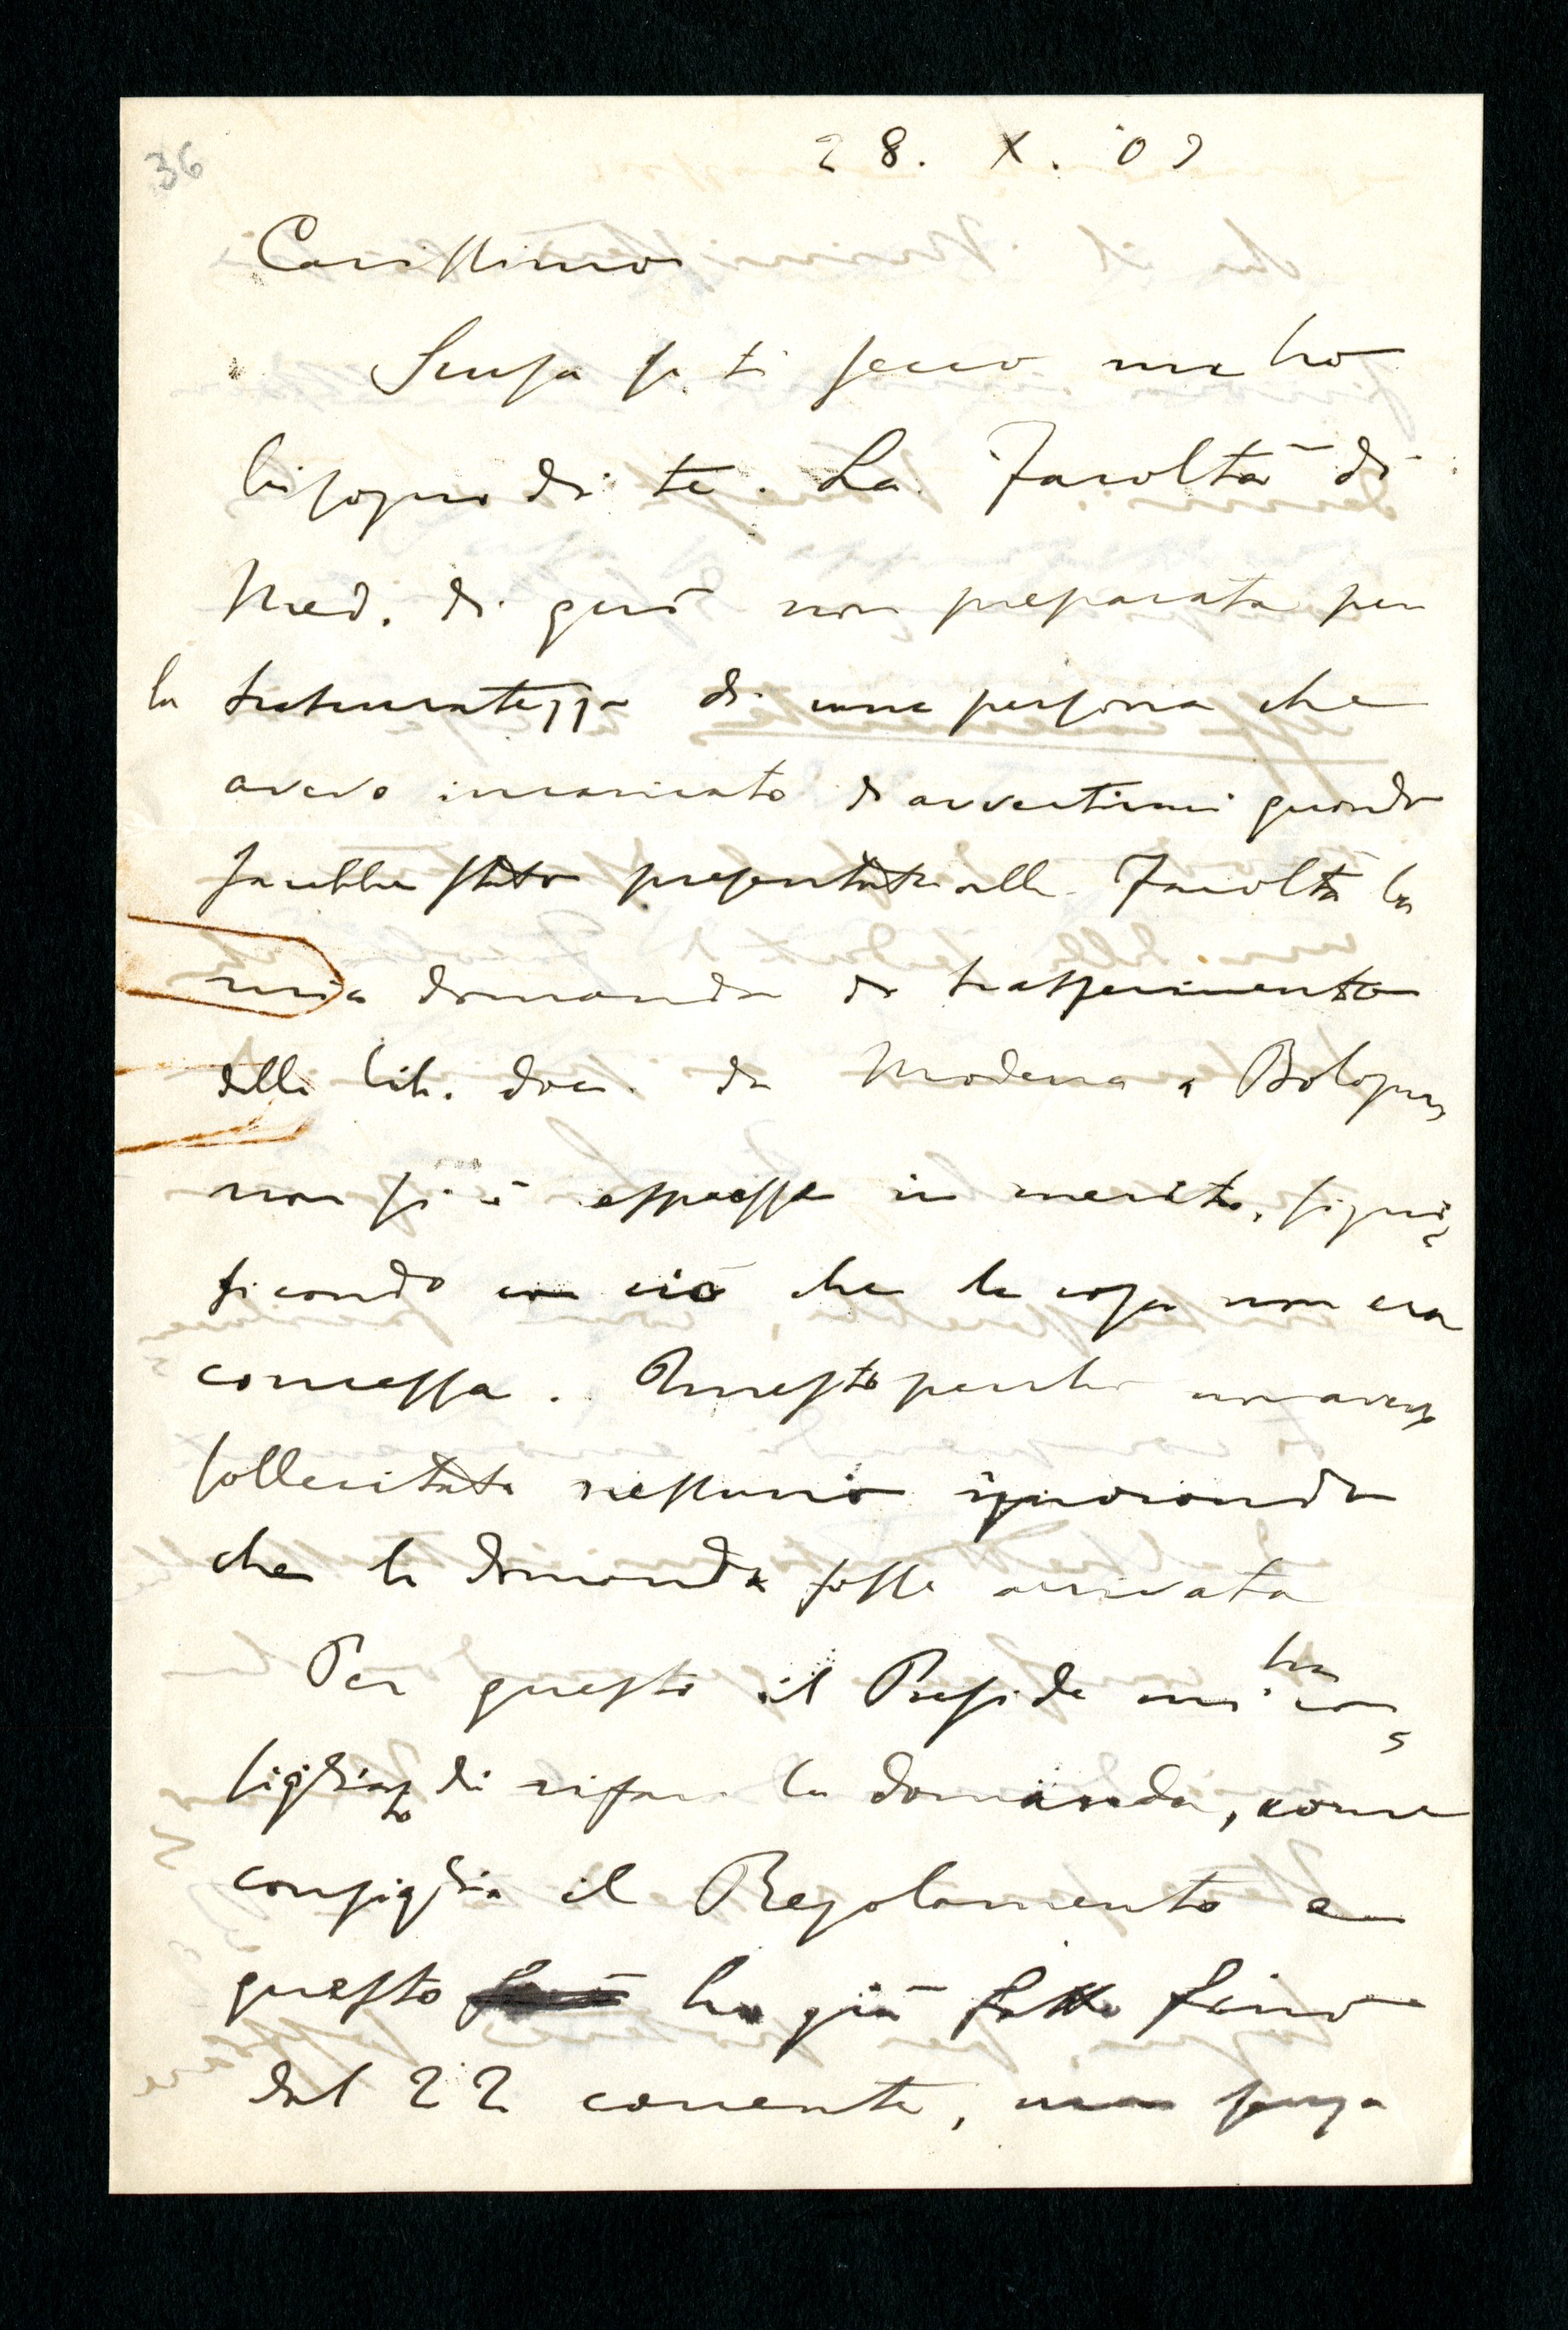 36
28. X. '09
Carissimo
Scusa se ti secco ma ho
bisogno di te. La Facoltà di
Med. di quì non preparata per
la trascuratezza di una persona che
avevo incaricato di avvertirmi quando
sarebbe stata presentata alla Facoltà la
mia domanda di trasferimento
della lib. doc. da Modena a Bologna
non si è espressa in merito, signi=
ficando con ciò che la cosa non era
concessa. Questo perchè non avevo
sollecitato nessuno ignorando
che la domanda fosse arrivata
Per questo il Preside mi ha con=
sigliato di rifare la domanda, come
consiglia il Regolamento e
questo ho già fatto fino
dal 22 corrente, ma senza